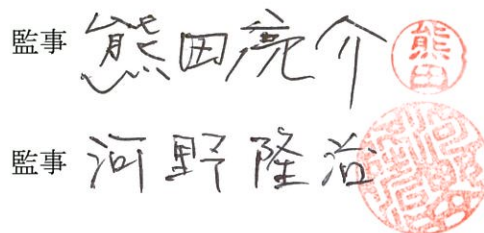 監事 熊田亮介 熊田
監事 河野隆治